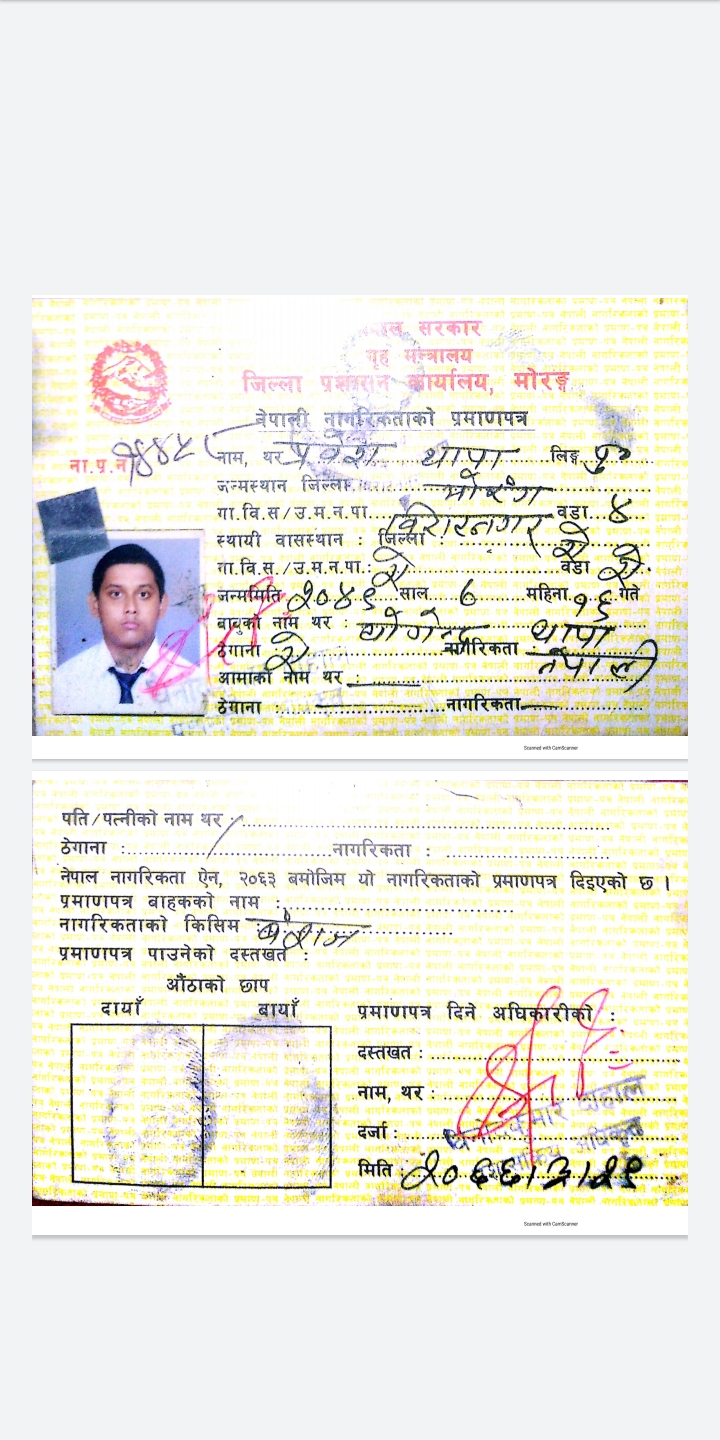 नेपाल सरकार
गृह मन्त्रालय
जिल्ला प्रशासन कार्यालय, मोरङ्ग
नेपाली नागरिकताको प्रमाणपत्र
ना.प्र.नं
नाम, थर प्रवेश थापा लिङ्ग पु०
जन्मस्थान जिल्ला मोरंग
गा.वि.स/उ.म.न.पा. विराटनगर वडा ४
स्थायी वासस्थान : जिल्ला : ऐ
गा.वि.स./उ.म.न.पा.: ऐ वडा ऐ.
जन्ममिति २०४९ साल ६ महिना १६ गते
बाबुको नाम थर : योगेन्द्र थापा
ठेगाना ऐ नागरिकता नेपाली
आमाको नाम थर :
ठेगाना : नागरिकता
Scanned with CamScanner
पति/पत्नीको नाम थर :
ठेगाना : नागरिकता :
नेपाल नागरिकता ऐन, २०६३ बमोजिम यो नागरिकताको प्रमाणपत्र दिइएको छ ।
प्रमाणपत्र बाहकको नाम :
नागरिकताको किसिम वंशज
प्रमाणपत्र पाउनेको दस्तखत :
औंठाको छाप
दायाँ बायाँ
प्रमाणपत्र दिने अधिकारीको :
दस्तखत :
नाम, थर :
दर्जा :
मिति : २०६६।३।२९
Scanned with CamScanner